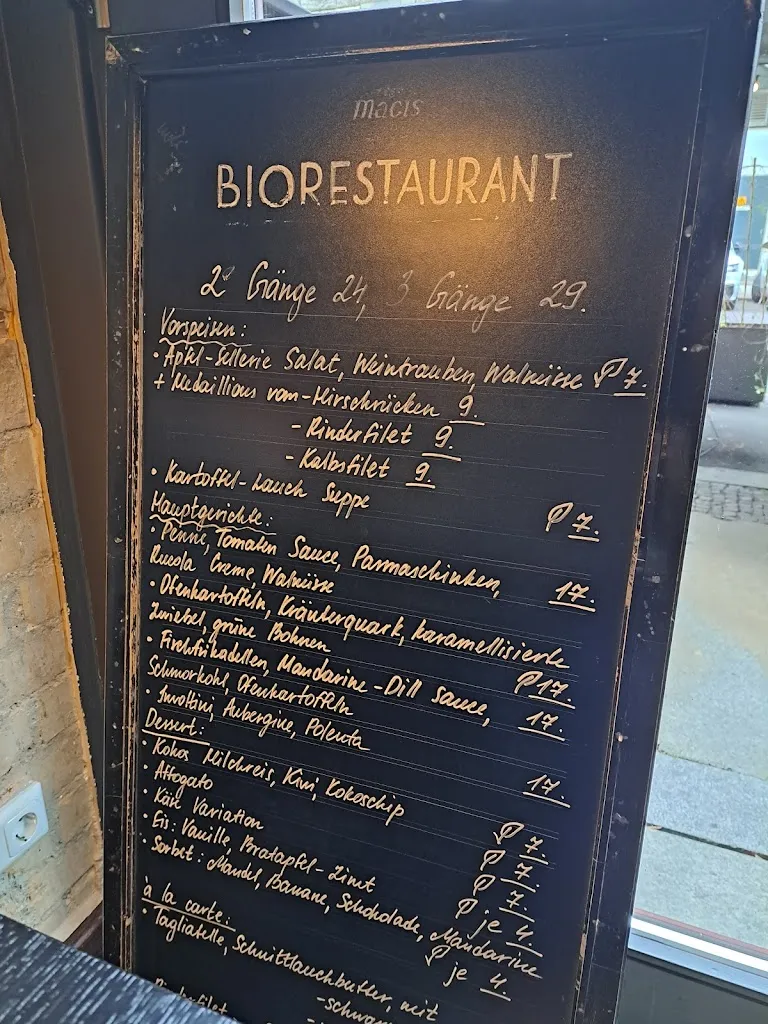 macis
BIORESTAURANT
2 Gänge 24, 3 Gänge 29.
Vorspeisen:
• Apfel-Sellerie Salat, Weintrauben, Walnüsse 7.
+ Medaillions vom - Hirschrücken 9.
- Rinderfilet 9.
- Kalbsfilet 9.
• Kartoffel-Lauch Suppe 7.
Hauptgerichte:
• Penne, Tomaten Sauce, Parmaschinken,
Rucola Creme, Walnüsse 17.
• Ofenkartoffeln, Kräuterquark, karamellisierte
Zwiebel, grüne Bohnen 17.
• Fischfrikadellen, Mandarine-Dill Sauce,
Schmorkohl, Ofenkartoffeln 17.
• Involtini, Aubergine, Polenta 17.
Dessert:
• Kokos Milchreis, Kiwi, Kokoschip 7.
• Affogato 7.
• Käse Variation 7.
• Eis: Vanille, Bratapfel-Zimt je 4.
• Sorbet: Mandel, Banane, Schokolade, Mandarine je 4.
à la carte:
• Tagliatelle, Schnittlauchbutter, mit
Rinderfilet